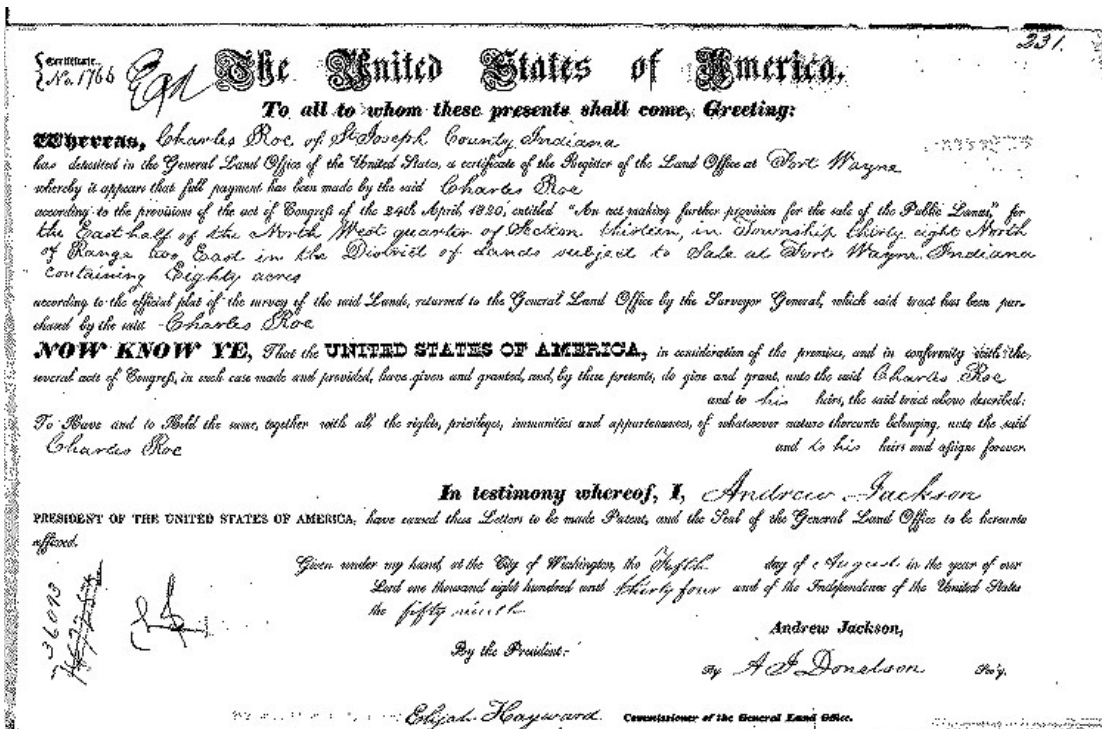 231.
Certificate
No. 1766
The United States of America.
To all to whom these presents shall come, Greeting:
Whereas, Charles Roe of St Joseph County Indiana
has deposited in the General Land Office of the United States, a certificate of the Register of the Land Office at Fort Wayne
whereby it appears that full payment has been made by the said Charles Roe
according to the provisions of the act of Congress of the 24th April, 1820, entitled "An act making further provision for the sale of the Public Lands," for
the East half of the North West quarter of Section thirteen, in Township thirty eight North
of Range two East in the District of Lands subject to Sale at Fort Wayne Indiana
containing Eighty acres
according to the official plat of the survey of the said Lands, returned to the General Land Office by the Surveyor General, which said tract has been pur-
chased by the said Charles Roe
NOW KNOW YE, That the UNITED STATES OF AMERICA, in consideration of the premises, and in conformity with the
several acts of Congress, in such case made and provided, have given and granted, and, by these presents, do give and grant, unto the said Charles Roe
and to his heirs, the said tract above described:
To Have and to Hold the same, together with all the rights, privileges, immunities and appurtenances, of whatsoever nature thereunto belonging, unto the said
Charles Roe and to his heirs and assigns forever.
In testimony whereof, I, Andrew Jackson
PRESIDENT OF THE UNITED STATES OF AMERICA, have caused these Letters to be made Patent, and the Seal of the General Land Office to be hereunto
affixed.
Given under my hand, at the City of Washington, the Fifth day of August in the year of our
Lord one thousand eight hundred and thirty four and of the Independence of the United States
the fifty ninth
Andrew Jackson,
By the President:
By A J Donelson Sec'y.
Elijah Hayward Commissioner of the General Land Office.
36093